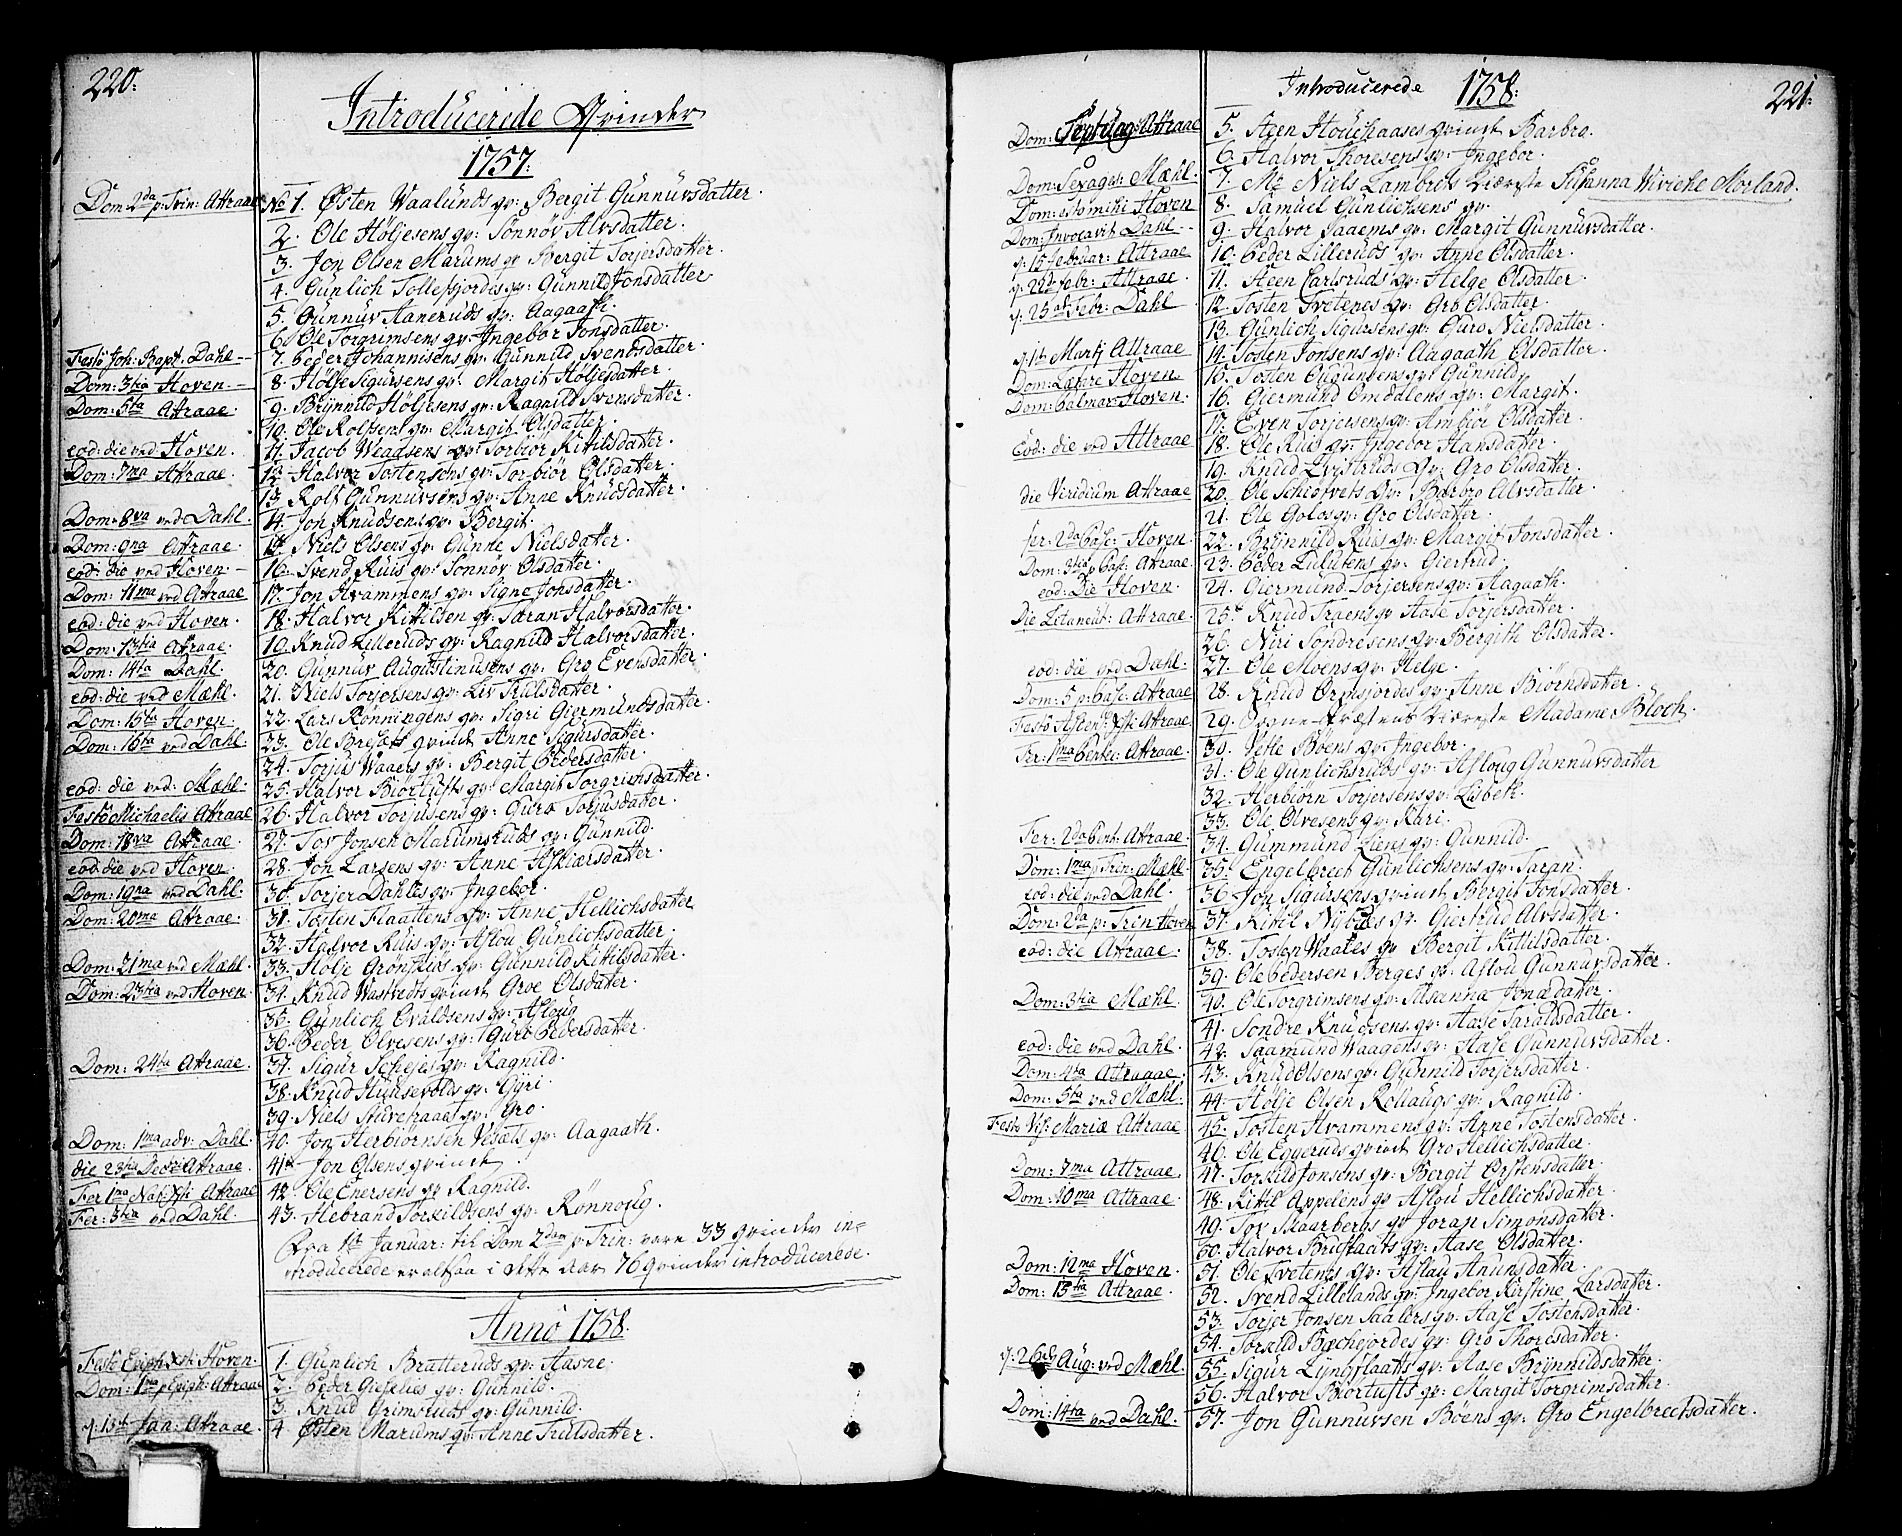 220.
Introducerede Qvinder
1757.
Dom 2da p: Trin: Attraae No 1. Østen Vaalunds qv: Bergit Gunnuvsdatter.
2. Ole Høljesens qv: Sønnøv Alvsdatter.
3. Jon Olsen Marums qv Bergit Torjersdatter.
4. Gunlich Tollefsjordes qv: Gunnild Jonsdatter
5. Gunnuv Aaneruds qv: Aagaath.
6. Ole Torgrimsens qv: Ingebor Jonsdatter.
Festo Joh: Bapt. Dahl 7. Peder Johannisens qv: Gunnild Svendsdatter.
Dom: 3tia Hoven 8. Hølje Sigursens qv: Margit Høljesdatter.
Dom: 5ta Attraae. 9. Brynnild Høljesens qv: Ragnild Svensdatter.
10. Ole Rolfsens qv: Margit Olsdatter.
eod: die ved Hoven. 11. Jacob Waagsens qv: Torbiør Kittilsdatter.
Dom: 7ma Attraae 12. Halvor Tostensens qv: Torbiør Olsdatter.
13. Rolf Gunnuvsens qv: Anne Knudsdatter.
Dom: 8va ved Dahl. 14. Jon Knudsens qv: Bergit.
Dom: 9na Attraae. 15. Niels Olsens qv: Gunne Nielsdatter.
eod: die ved Hoven. 16. Svend Ruis qv: Sønnøv Olsdatter.
Dom: 11ma ved Attraae 17. Jon Hvammens qv: Signe Jonsdatter.
eod: die ved Hoven. 18. Halvor Kittilsen qv: Saran Halvorsdatter.
Dom: 13tia Attraae. 19. Knud Lilleruds qv: Ragnild Halvorsdatter.
Dom: 14ta Dahl. 20. Gunnuv Augustinusens qv: Gro Evensdatter.
eod: die ved Mæhl. 21. Niels Torjersens qv: Liv Trulsdatter.
Dom: 15ta Hoven. 22. Lars Rønningens qv: Sigri Giermundsdatter.
Dom: 16ta ved Dahl. 23. Ole qvinde Anne Sigursdatter.
24. Torjus Waaers qv: Bergit Pedersdatter.
eod: die ved: Mæhl. 25. Halvor Biørtufts qv: Margit Torgrimsdatter.
Festo Michaelis Attraae 26. Halvor Torjusens qv: Guro Torjusdatter.
Dom: 18va Attraae. 27. Tov Jonsen Marumsruds qv: Gunnild.
eod: die ved Hoven. 28. Jon Larsens qv: Anne Askiærsdatter.
Dom: 19na ved Dahl. 30. Torjer Dahles qv: Ingebor.
Dom: 20ma Attraae: 31. Tosten Flaattens qv: Anne Hellichsdatter
32. Halvor Ruis qv: Aslou Gunlichsdatter.
Dom: 21ma ved Mæhl. 33. Hølje Grønskiis qv: Gunnild Kittilsdatter.
Dom: 23tia ved Hoven. 34. Knud Wastvedts qvinde Groe Olsdatter.
35. Gunlich Evaldsens qv: Asloug
36. Peder Olvesens qv: Guro Pedersdatter.
Dom: 24ta Attraae. 37. Sigur Schejes qv: Ragnild.
38. Knud Hundsevolds qv: Gyri.
39. Niels qv: Gro.
Dom: 1ma adv: Dahl. 40. Jon Herbiørnsen Vesæts qv: Aagaath.
die 23tia Dec: Attraae. 41. Jon Olsens qvinde
Fer 1ma Nat: Xsti Attraae 42. Ole Enersens qv Ragnild.
Fer: 3tia ved Dahl. 43. Hebrand Torkildsens qv: Rønnoug.
Fra 1st Januar: til Dom 2dam p: Trin: vare 33 qvinder in=
troducerede er altsaa i dette Aar 76 qvinder introducerede.
Anno 1758.
Festo Epiph: Xsti Hoven. 1. Gunlich Bratteruds qv: Aasne.
Dom: 1ma p Epiph: Attraae 2. Peder Gisholts qv: Gunnild.
3. Knud Grimsruds qv: Gunnild.
d: 15de Jan: Attraae. 4 Østen Marums qv: Anne Trulsdatter.
Introducerede 1758. 221.
Dom: Septuag: Attraae 5. Steen Houchaases qvinde Barbra.
6. Halvor Thoresens qv: Ingebor.
Dom: Sexages: Mæhl. 7. Mr Niels Lambrets Kiæreste Susanna Wiviche Morland.
Dom: estomihi Hoven 8. Samuel Gunlichsens qv:
Dom: Invocavit Dahl. 9. Halvor Saaems qv: Margit Gunnuvsdatter.
d: 15 Februar: Attraae 10. Peder Lilleruds qv: Anne Olsdatter.
d: 22de Febr: Attraae. 11. Steen Carlsruds qv: Helge Olsdatter.
d: 25de Febr: Dahl 12. Tosten Tvetenes qv: Gro Olsdatter.
13. Gunlich Sigursens qv: Guro Nielsdatter.
d: 1ste Martj Attraae 14. Tosten Jonsens qv: Aagaath Olsdatter.
Dom: Lætare Hoven. 15. Tosten qv: Gunnild.
Dom: Palmar: Hoven. 16. Giermund Omdalens qv: Margit.
17. Even Torjersens qv: Ambiør Olsdatter.
Eod: die ved Attraae 18. Ole Ruis qv: Ingebor Hansdatter.
19. Knud qv: Gro Olsdatter.
die Viridium Attraae 20. Ole Schiøtvets qv: Barbro Alvsdatter.
21. Ole Golos qv: Gro Olsdatter.
fer: 2da Pasc: Hoven. 22. Brynnild Ruis qv: Margit Jonsdatter.
Dom: 3tia p Pasc: Attraae. 23. Peder qv: Giertrud.
eod: Die Hoven. 24. Giermund Torjersens qv: Aagaath.
Die Litaneut: Attraae. 25. Knud Traens qv Aase Torjersdatter.
26. Niri Søndresens qv: Bergith Olsdatter.
eod: die ved Dahl. 27. Ole Moens qv: Helge.
Dom: 5 p: Pasc: Attraae 28. Knud Ormsjordes qv: Anne Biørnsdatter.
Festo Ascens: Xsti Attraae. 29. Sogne-Præstens Kiæreste Madame Bloch.
Fer: 1ma Pente: Attraae. 30. Vetle Bøens qv: Ingebor.
31. Ole Gunlichsruds qv: Asloug Gunnuvsdatter
32. Herbiørn Torjersens qv: Lisbeth.
33. Ole Olvesens qv: Kari.
Fer: 2da Pent: Attraae. 34. Gummund Liens qv: Gunnild.
Dom: 1ma p Trin: Mæhl. 35. Engelbrect Gunlichsens qv: Saran.
eod: die ved Dahl. 36. Jon Sigursens qvinde Bergit Jonsdatter.
Dom: 2da p: Trin Hoven 37. Kittil qv: Giertrud Alvsdatter.
eod: die Attraae. 38. Tosten Waales qv Bergit Kittilsdatter.
39. Ole Pedersen Berges qv: Aslou Gunnuvsdatter.
Dom: 3tia Mæhl. 40. Ole Torgrimsens qv: Susanna Jonædatter.
41. Søndre Knudsens qv: Aase Taraldsdatter.
eod: die ved Dahl. 42. Saamund Waagens qv: Aase Gunnuvsdatter.
Dom: 4ta Attraaae. 43. Knud Olsens qv: Gunnild Torjersdatter.
Dom: 5ta ved Mæhl. 44. Hølje Olsen Rollaugs qv: Ragnild.
Festo Vis: Mariæ Attraae 45. Tosten Hvammens qv: Anne Tostensdatter.
46. Ole Eggeruds qvinde Gro Hellichsdatter.
Dom: 7ma Attraae. 47. Torkild Jonsens qv: Bergit Østensdatter.
Dom: 10ma Attraae. 48. Kittil Appelens qv Aslou Hellichsdatter.
49. Tov Maarbergs qv: Joran Simonsdatter.
50. Halvor qv: Aase Olsdatter.
Dom: 12ma Hoven. 51. Ole Tvetens qv: Aslau Anunsdatter.
Dom: 13tia Attraae. 52. Svend Lillelands qv: Ingebor Kirstine Larsdatter.
53. Torjer Jonsen Saalers qv: Aase Tostensdatter.
54. Torald Bachejordes qv: Gro Thoresdatter.
d. 26de Aug: ved Mæhl. 55. Sigur Lyngflaatts qv: Aase Brynnildsdatter.
56. Halvor Biørtufts qv: Margit Torgrimsdatter.
Dom: 14ta ved Dahl. 57. Jon Gunnuvsen Bøens qv: Gro Engelbrectsdatter.